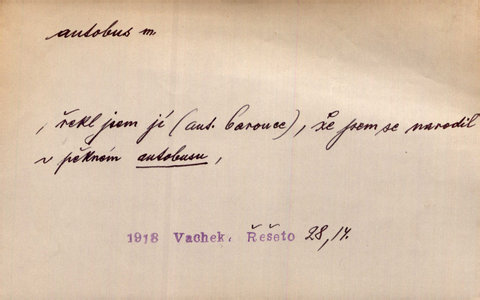 autobus m.
, řekl jsem jí (aut. baronce), že jsem se narodil
v pěkném autobusu,
1918 Vachek, Řešeto 28,14.